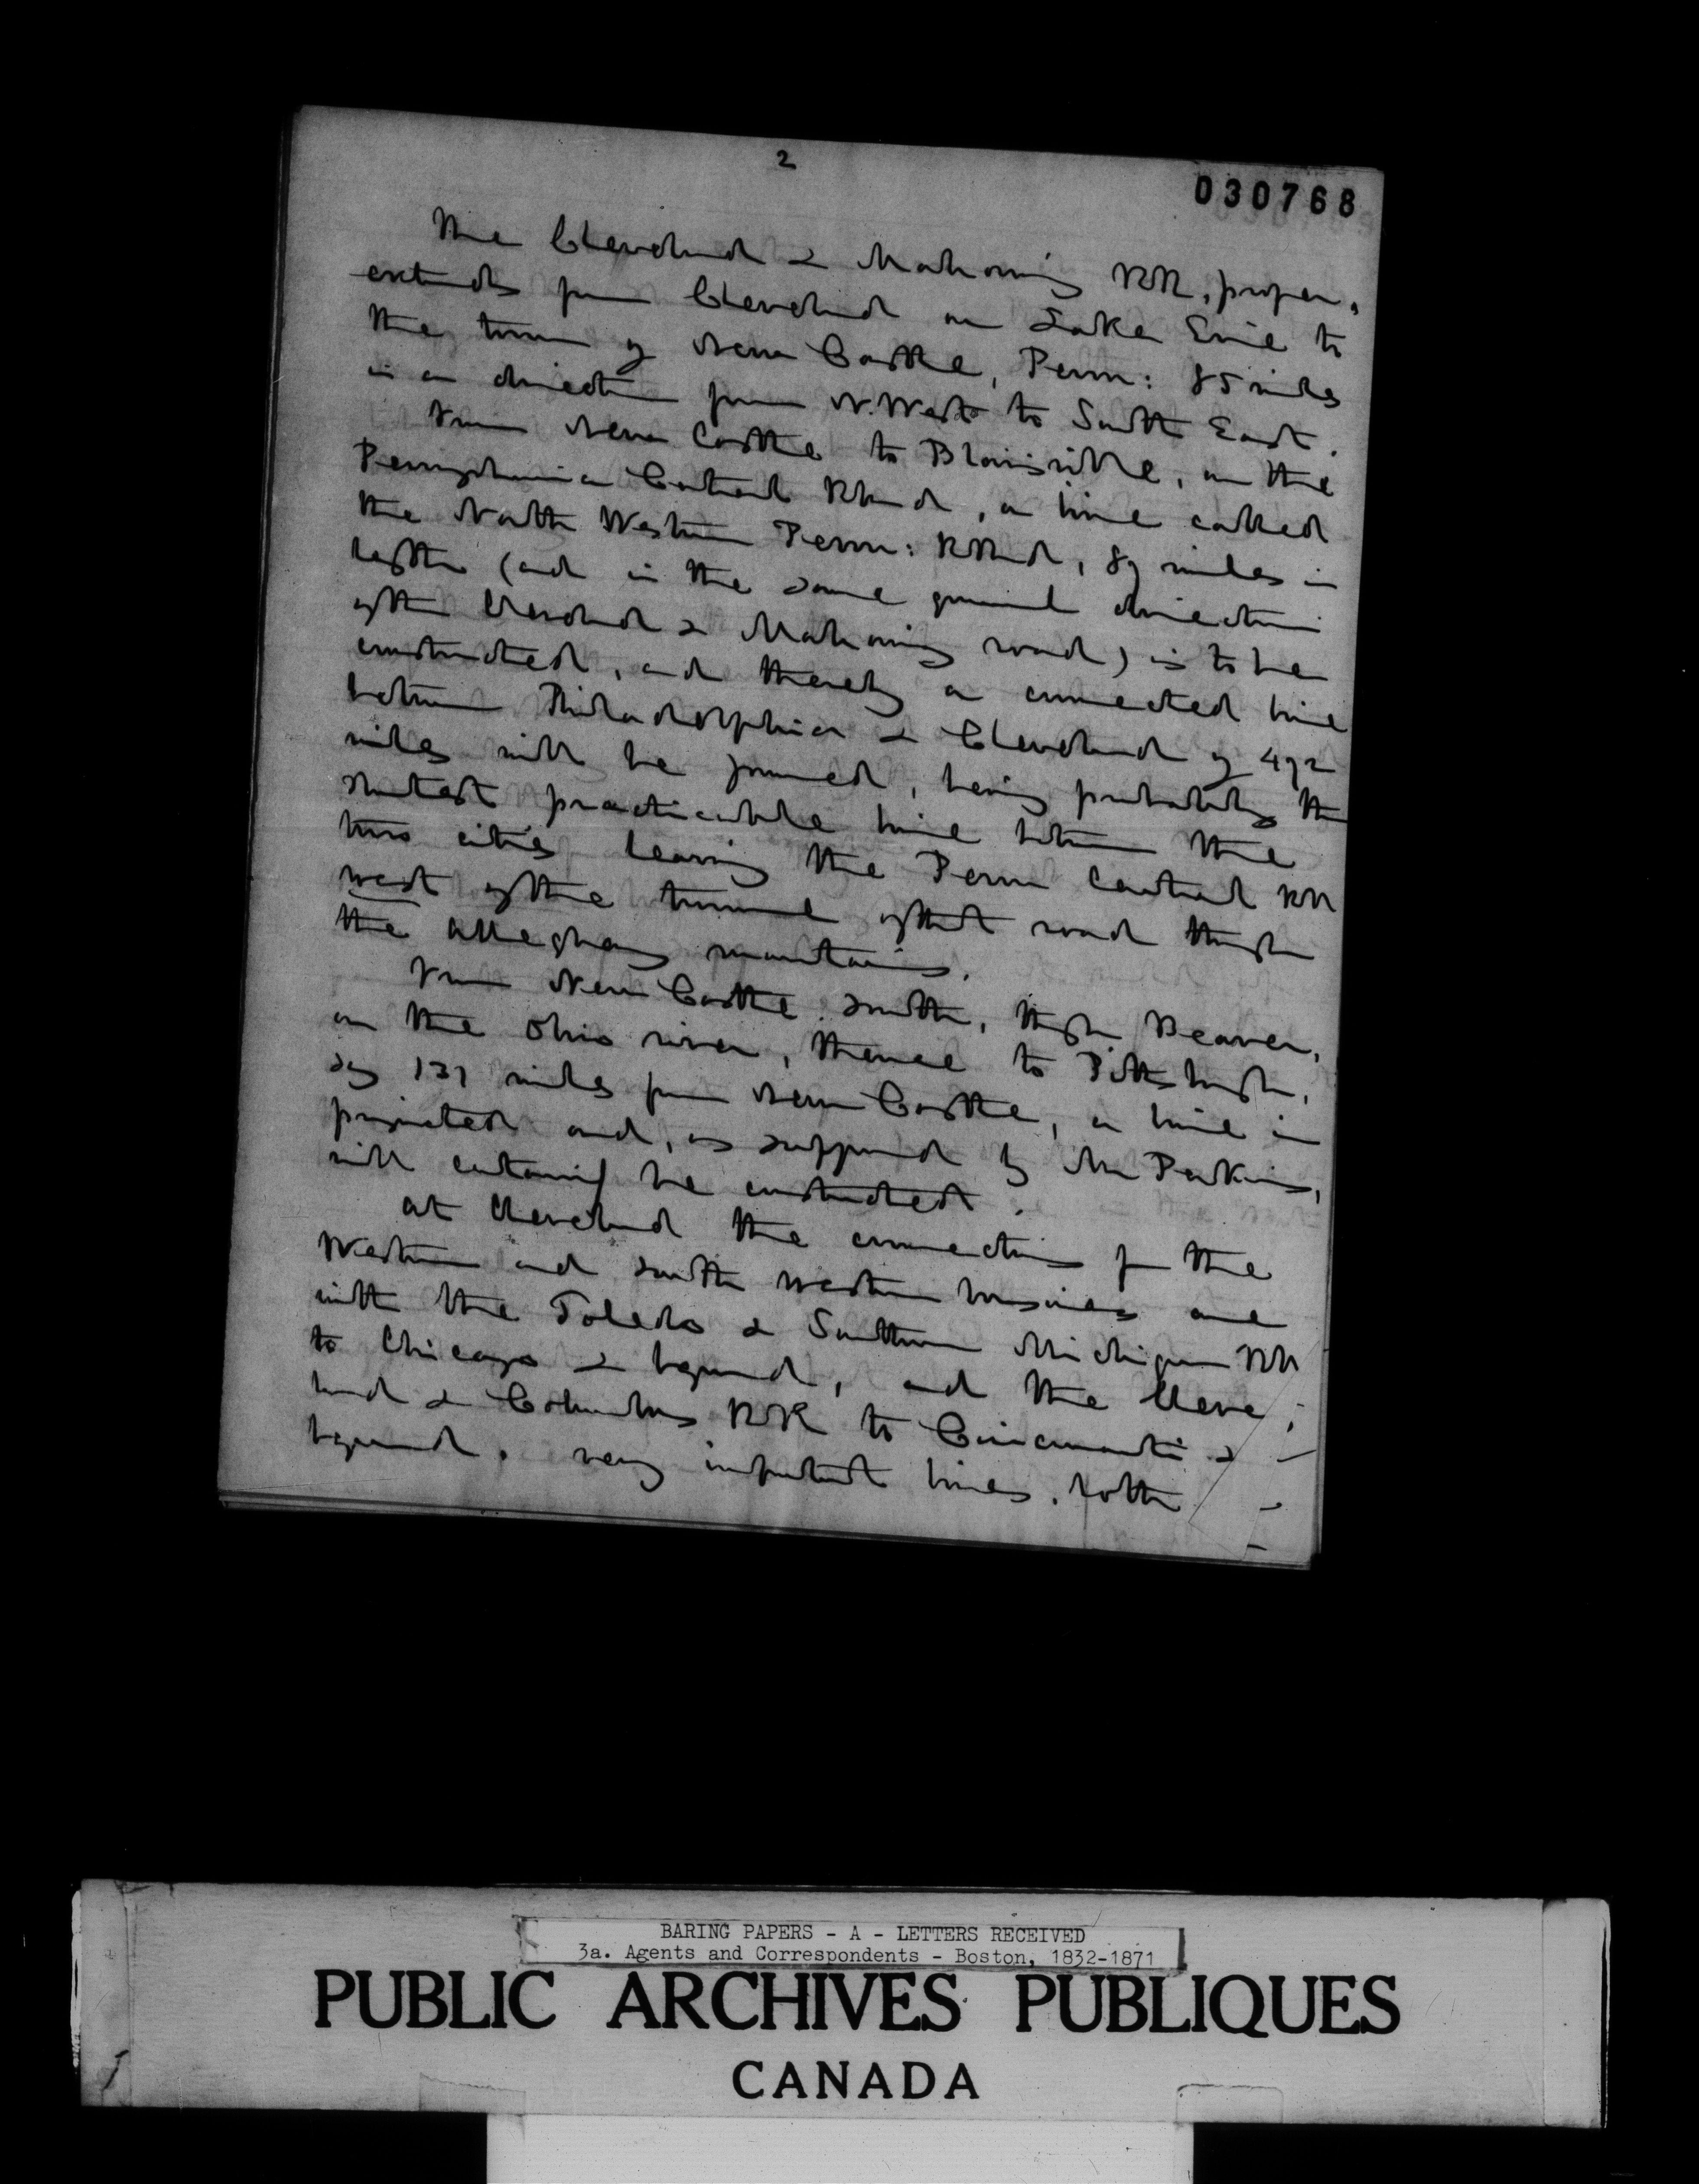 2
030768
The Cleveland & Mahoning RR, proper,
extends from Cleveland on Lake Erie to
the town of New Castle, Penn: 85 miles
in a direction from N.West to South East.
From New Castle to Blairsville, on the
Pennsylvania Central RRoad, a line called
the North Western Penn: RRoad, 87 miles in
length (and in the same general direction
of the Cleveland & Mahoning road) is to be
constructed, and thereby a connected line
between Philadelphia & Cleveland of 472
miles will be formed, being probably the
shortest practicable line between the
two cities leaving the Penn Central RR
west of the tunnel of that road through
the Alleghany mountains.
From New Castle south, through Beaver,
on the Ohio river, thence to Pittsburgh,
say 131 miles from New Castle, a line is
projected and, as supposed by Mr Perkins,
will certainly be constructed.
At Cleveland the connections for the
Western and south western business are
with the Toledo & Southern Michigan RR
to Chicago & beyond, and the Cleve;
land & Columbus RR to Cincinnati &
beyond. very important lines, both
BARING PAPERS - A - LETTERS RECEIVED
3a. Agents and Correspondents - Boston, 1832-1871
PUBLIC ARCHIVES PUBLIQUES
CANADA